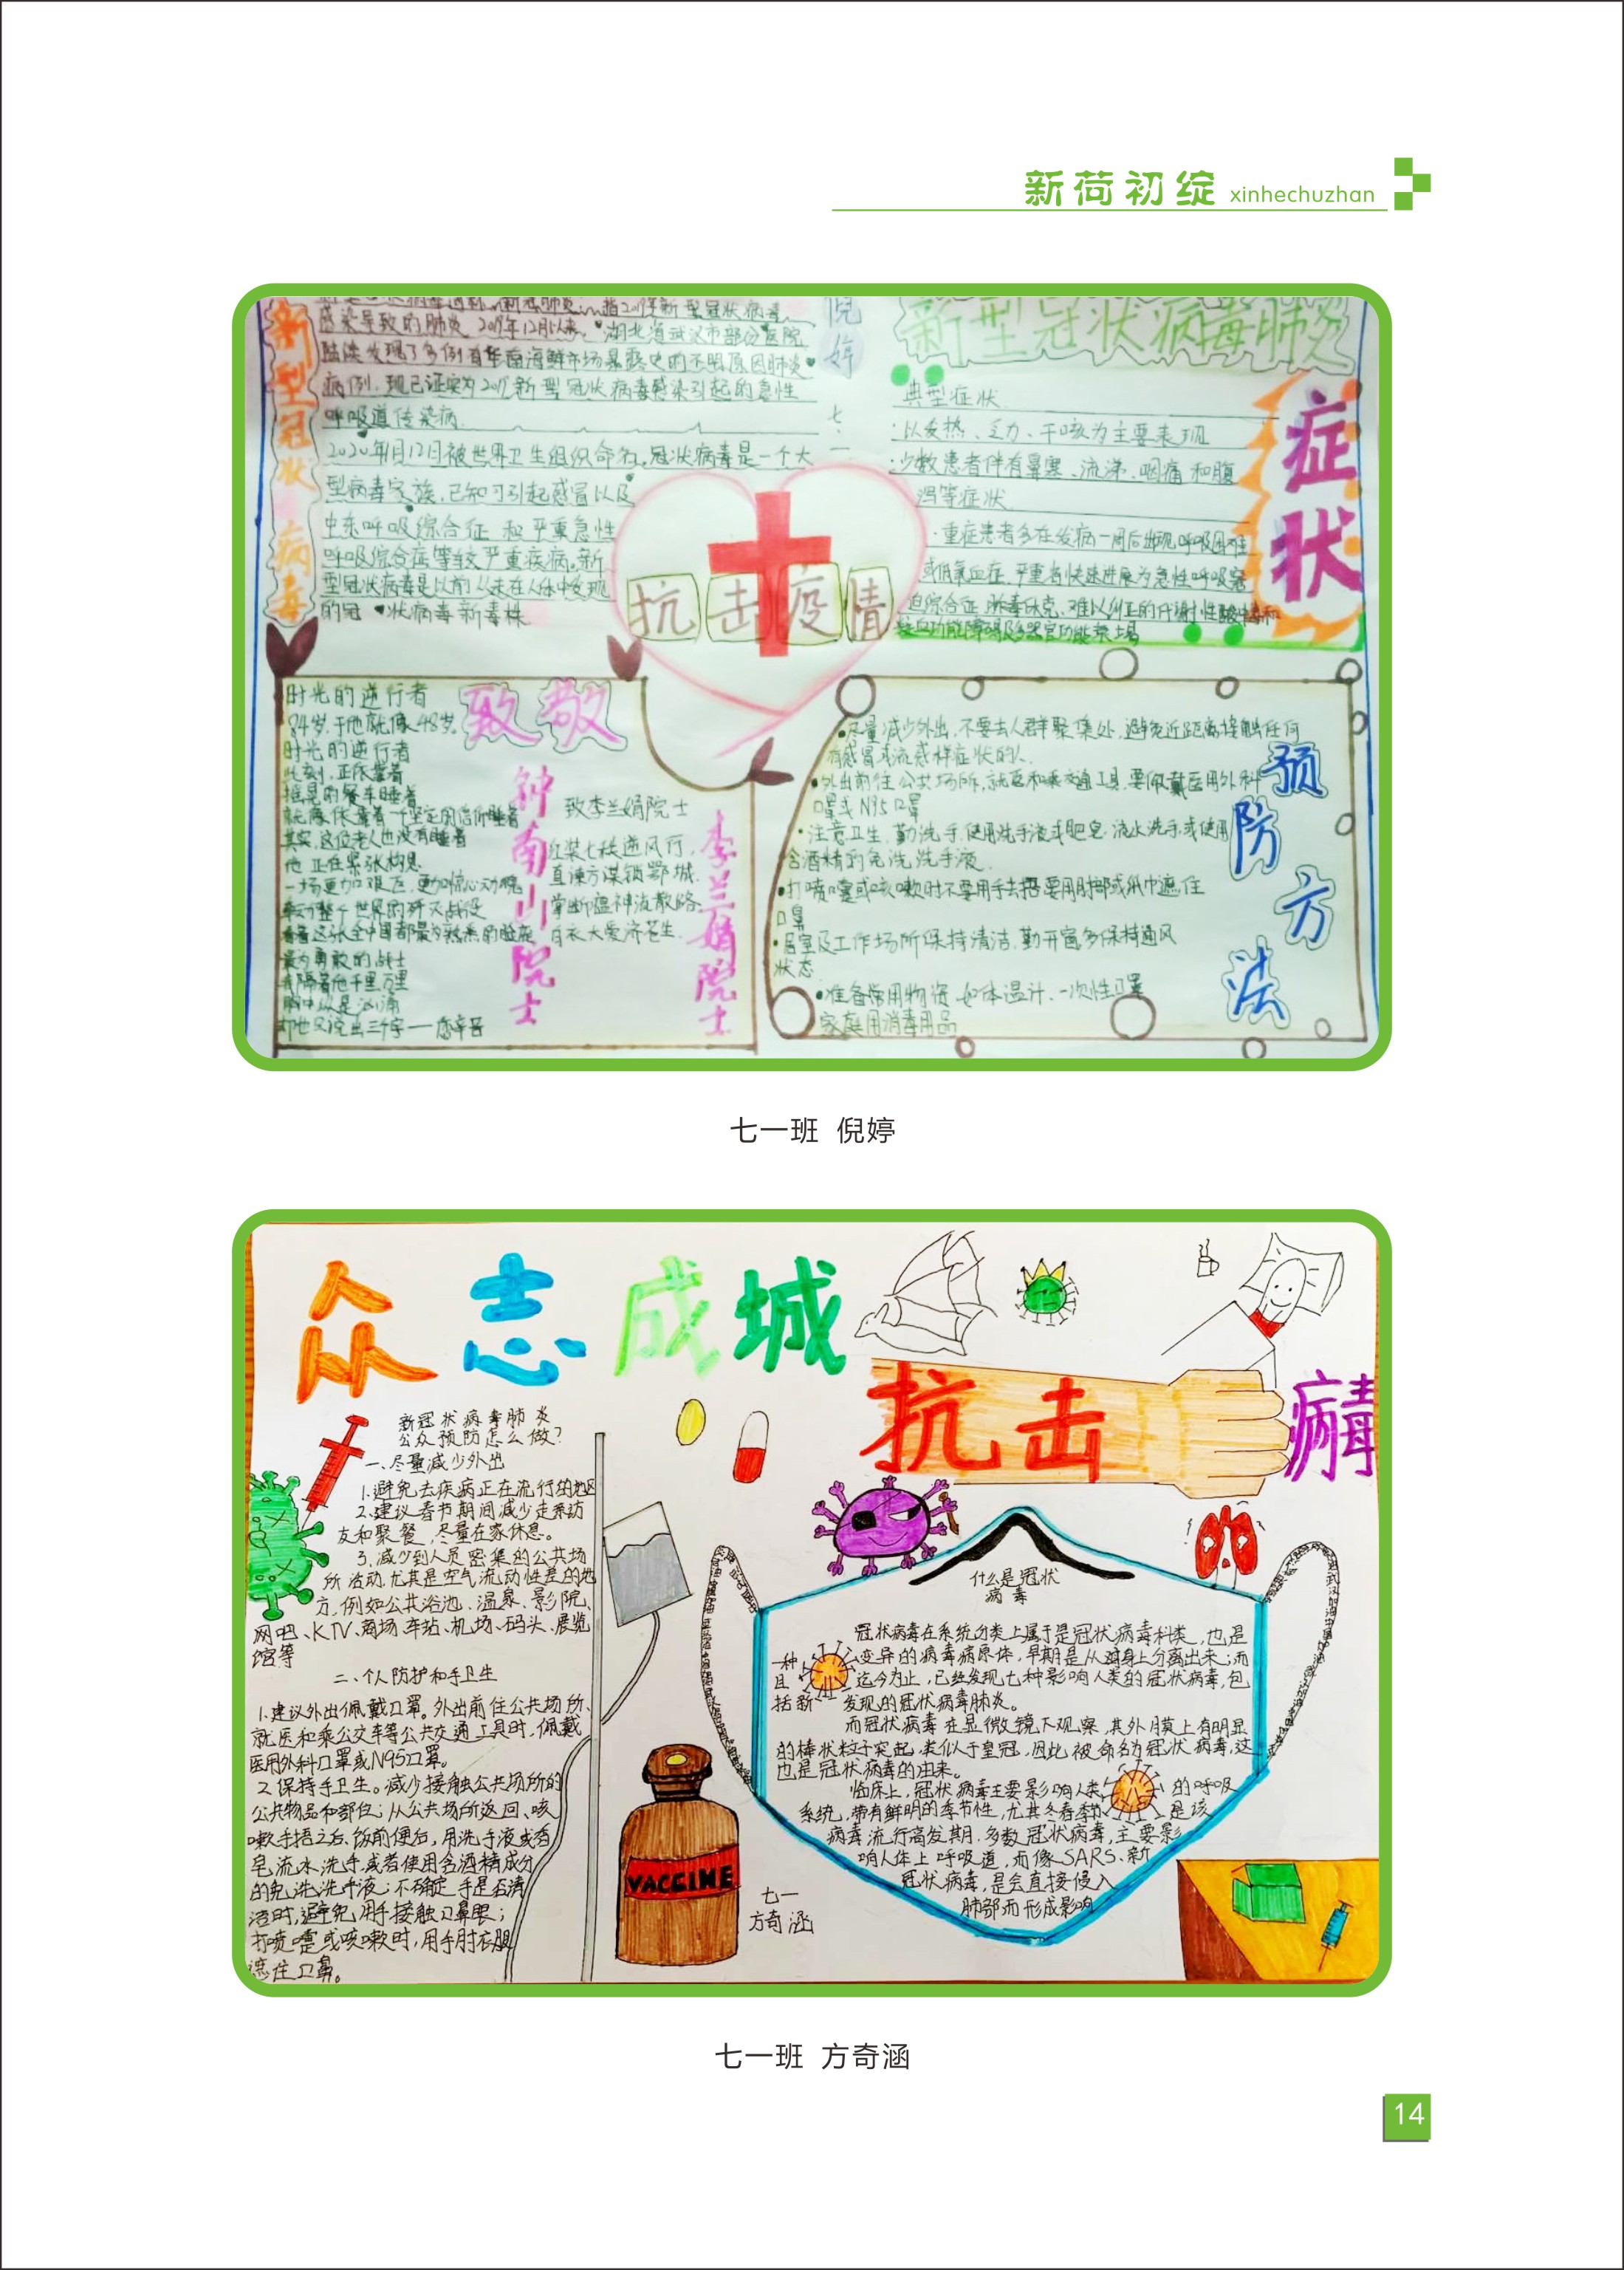 新荷初绽 xinhechuzhan
新型冠状病毒
感染导致的肺炎 2019年12月以来 湖北省武汉市部分医院
陆续发现了多例有华南海鲜市场暴露史的不明原因肺炎
病例,现已证实为2019新型冠状病毒感染引起的急性
呼吸道传染病
2020年1月12日被世界卫生组织命名。冠状病毒是一个大
型病毒家族,已知可引起感冒以及
中东呼吸综合征和严重急性
呼吸综合征等较严重疾病。新
型冠状病毒是以前从未在人体中发现
的冠状病毒新毒株
倪婷
七一
抗击疫情
新型冠状病毒肺炎
症状
典型症状
·以发热、乏力、干咳为主要表现
·少数患者伴有鼻塞、流涕、咽痛和腹
泻等症状
·重症患者多在发病一周后出现呼吸困难
或低氧血症,严重者快速进展为急性呼吸窘
迫综合征、脓毒症休克、难以纠正的代谢性酸中毒和
致敬
时光的逆行者
84岁,于他就像48岁。
时光的逆行者
此刻,正依靠着
摇晃的餐车睡着
其实,这位老人也没有睡着
他正在紧张构思
最为勇敢的战士
钟南山院士
致李兰娟院士
红装七秩逆风行,
直谏方谋锁鄂城.
掌断瘟神流散路.
白衣大爱济苍生.
李兰娟院士
预防方法
·尽量减少外出,不要去人群聚集处,避免近距离接触任何
有感冒或流感样症状的人
·外出前往公共场所,就医和乘交通工具,要佩戴医用外科
口罩或N95口罩
·注意卫生,勤洗手,使用洗手液或肥皂,流水洗手,或使用
含酒精的免洗洗手液
·打喷嚏或咳嗽时不要用手去捂要用肘部或纸巾遮住
口鼻
·居室及工作场所保持清洁,勤开窗多保持通风
状态
·准备常用物资,如体温计、一次性口罩
家庭用消毒用品
七一班 倪婷
众志成城
抗击病毒
新冠状病毒肺炎
公众预防怎么做?
一、尽量减少外出
1.避免去疾病正在流行的地区
2.建议春节期间减少走亲访
友和聚餐,尽量在家休息。
3.减少到人员密集的公共场
所活动,尤其是空气流动性差的地
方,例如公共浴池、温泉、影院、
网吧、KTV、商场、车站、机场、码头、展览
馆等
二、个人防护和手卫生
1.建议外出佩戴口罩。外出前往公共场所、
就医和乘公交车等公共交通工具时,佩戴
医用外科口罩或N95口罩。
2.保持手卫生。减少接触公共场所的
公共物品和部位;从公共场所返回、咳
嗽手捂之后、饭前便后,用洗手液或香
皂流水洗手,或者使用含酒精成分
的免洗洗手液;不确定手是否清
洁时,避免用手接触口鼻眼;
打喷嚏或咳嗽时,用手肘衣服
遮住口鼻。
VACCINE
七一
方奇涵
什么是冠状
病毒
冠状病毒在系统分类上属于是冠状病毒科类,也是
一种变异的病毒病原体,早期是从鸡身上分离出来;而
且迄今为止,已经发现七种影响人类的冠状病毒,包
括新发现的冠状病毒肺炎。
而冠状病毒在显微镜下观察,其外月膜上有明显
的棒状粒子突起,类似于皇冠,因此被命名为冠状病毒,这
也是冠状病毒的由来。
临床上,冠状病毒主要影响人类的呼吸
系统,带有鲜明的季节性,尤其冬春季节是该
病毒流行高发期.多数冠状病毒,主要影
响人体上呼吸道,而像SARS、新
冠状病毒,是会直接侵入
肺部而形成影响
七一班 方奇涵
14